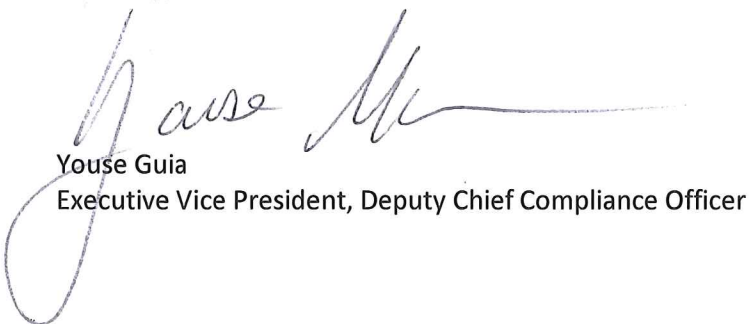 Youse
Youse Guia
Executive Vice President, Deputy Chief Compliance Officer